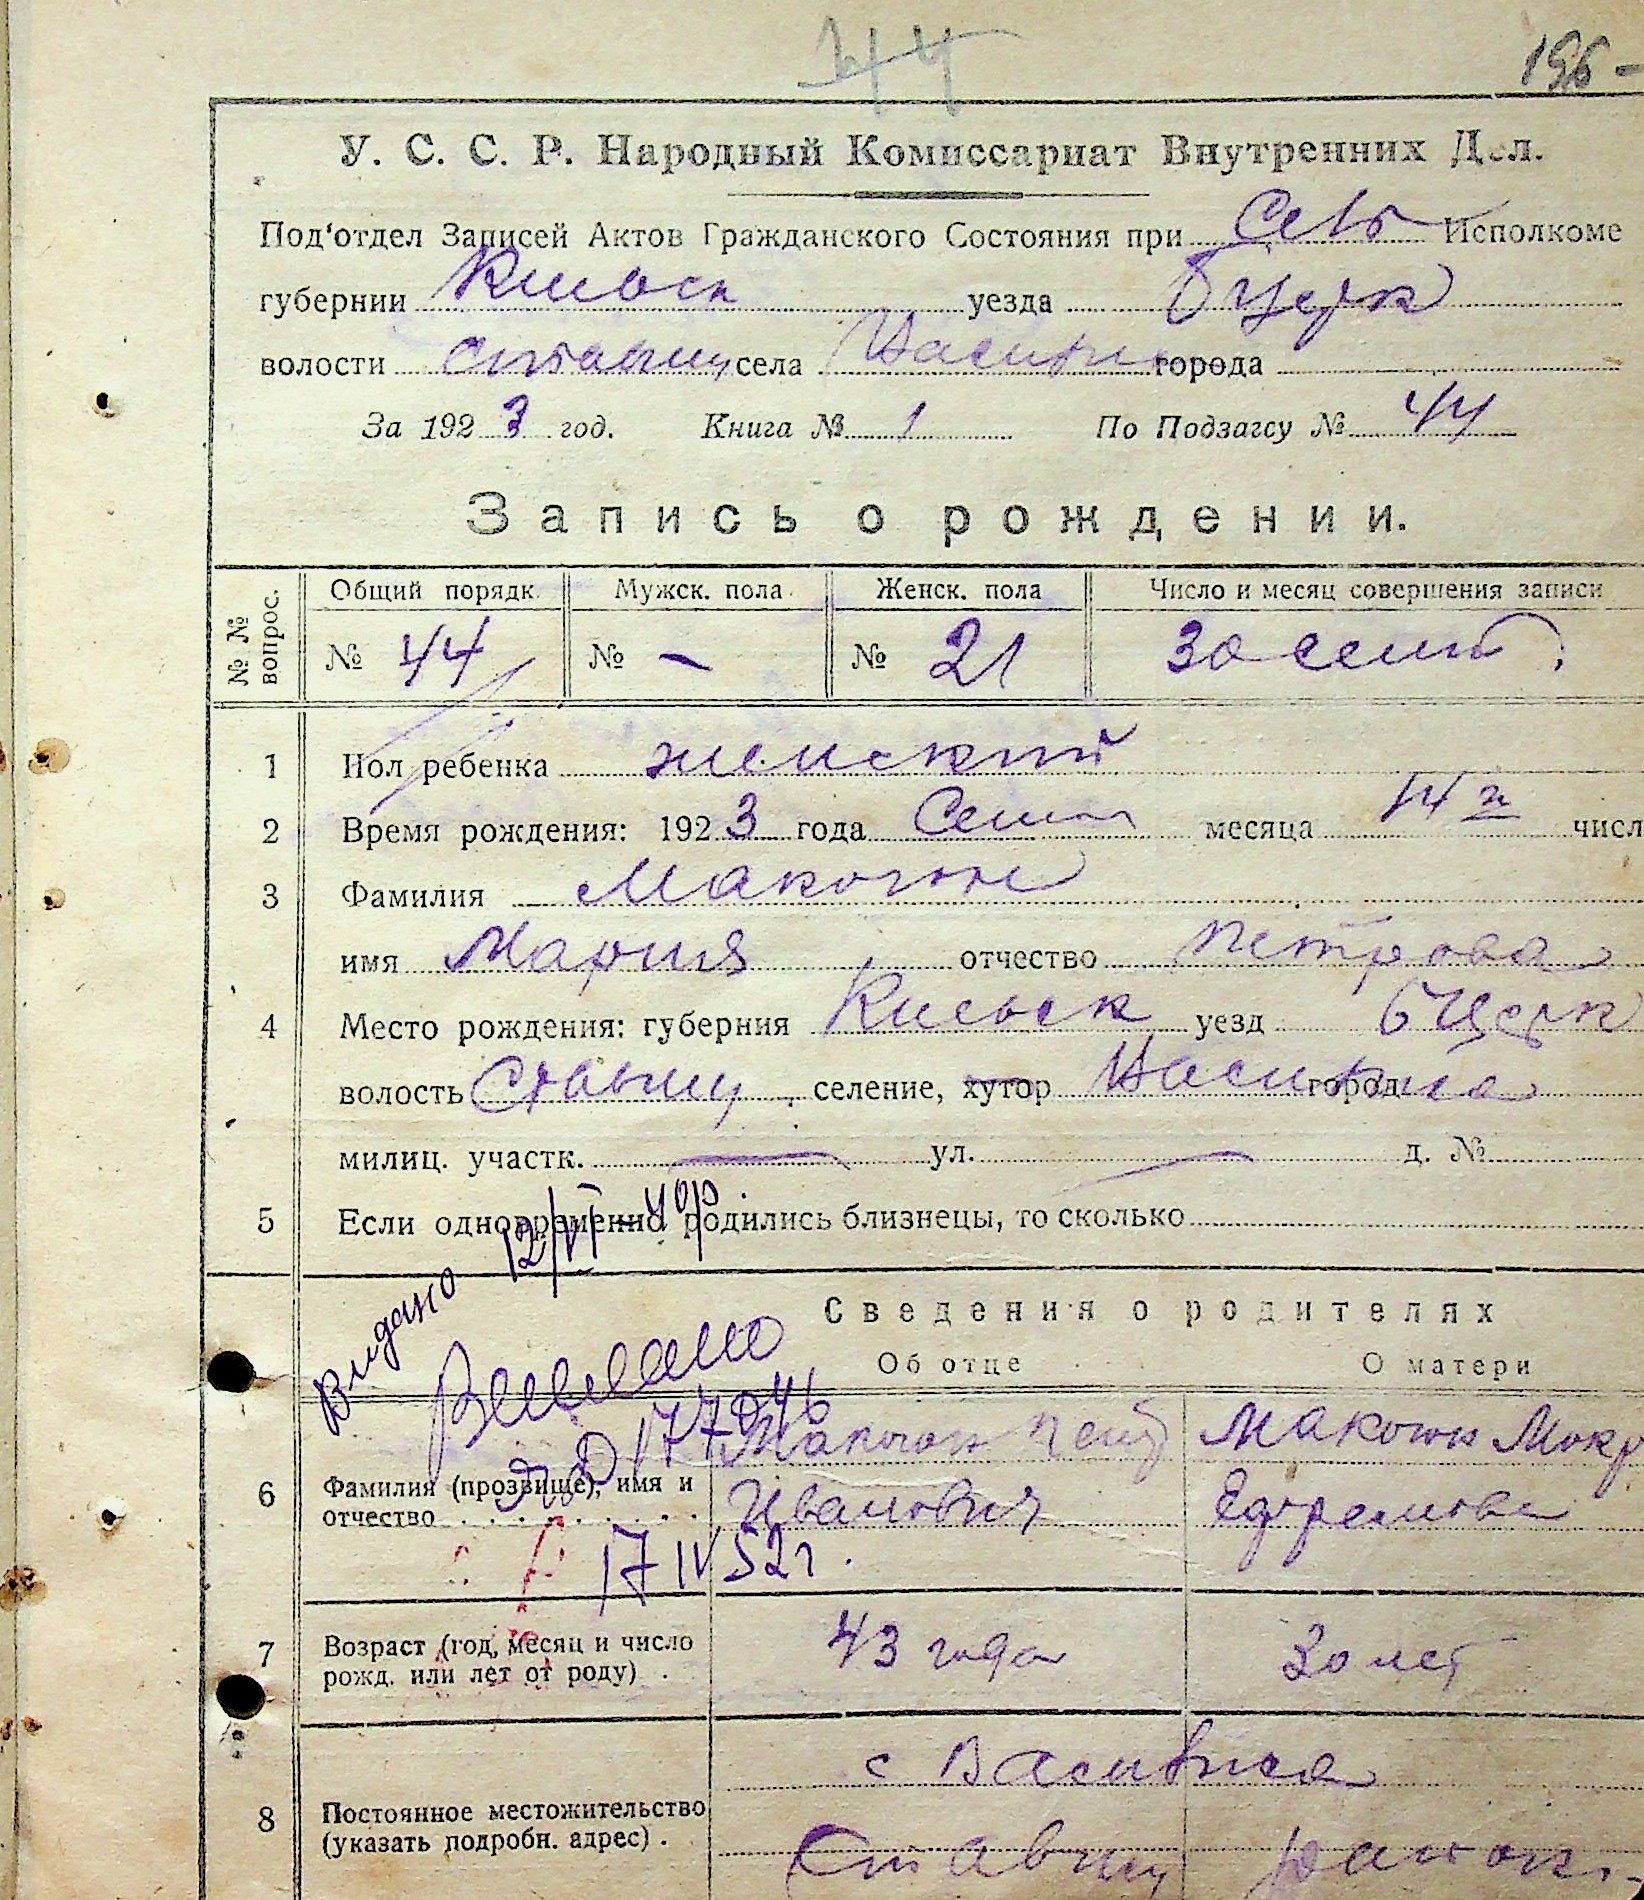 44
196 -
У. С. С. Р. Народный Комиссариат Внутренних Дел.
Под'отдел Записей Актов Гражданского Состояния при Сельс Исполкоме
губернии Киевск уезда Б Церк
волости Ставищ села Василиха города
За 1923 год. Книга № 1 По Подзагсу № 44
Запись о рождении.
№ № вопрос. Общий порядк. Мужск. пола Женск. пола Число и месяц совершения записи
№ 44 № — № 21 30 сент.
1 Пол ребенка женский
2 Время рождения: 1923 года Сент месяца 14го числ
3 Фамилия Макогон
имя Мария отчество Петрова
4 Место рождения: губерния Киевск уезд Б Церк
волость Ставищ, селение, хутор город
милиц. участк. — ул. — д. №
5 Если одновременно родились близнецы, то сколько
Видано 12/VI – 40р.
Сведения о родителях
Об отце О матери
177046
6 Фамилия (прозвище), имя и отчество Макогон Петр Иванович Макогон Мокр Ефремовн
17 IV 52 г.
7 Возраст (год, месяц и число рожд. или лет от роду) . 43 года 30 лет
8 Постоянное местожительство (указать подробн. адрес) . с
Ставищ район.